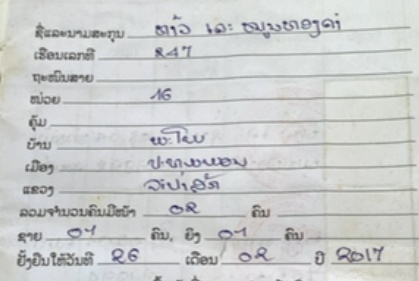 ຊື່ແລະນາມສະກຸນ ຫາວ ແລະ ໝູນທອງຄຳ
ເຮືອນເລກທີ 247
ຖະໜົນສາຍ
ໜ່ວຍ 16
ຄຸ້ມ
ບ້ານ ພະໂພ
ເມືອງ ປະທຸມພອນ
ແຂວງ ຈຳປາສັກ
ລວມຈຳນວນຄົນມີໜ້າ 02 ຄົນ
ຊາຍ 01 ຄົນ, ຍິງ 01 ຄົນ
ຢັ້ງຢືນໃຫ້ວັນທີ 26 ເດືອນ 02 ປີ 2017